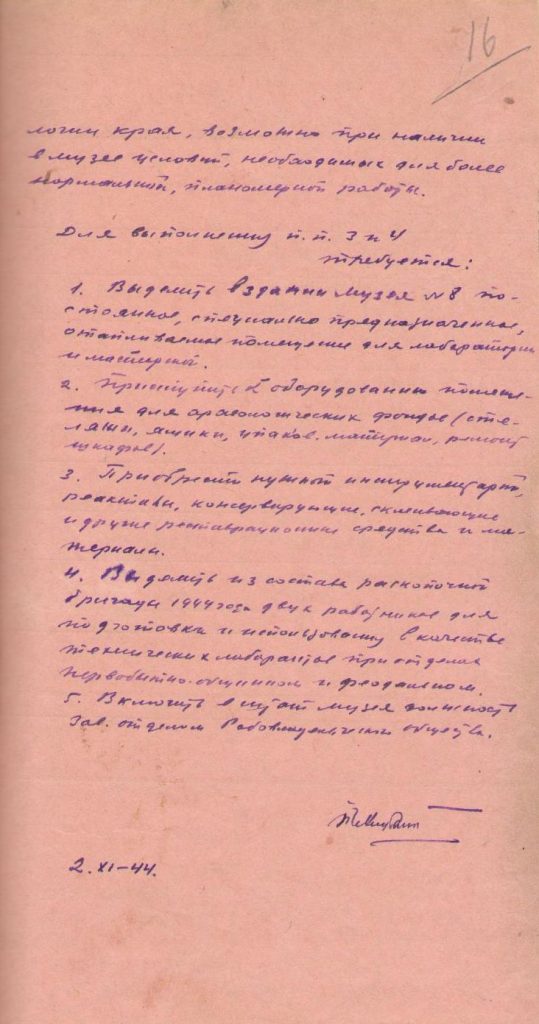 16
логии края, возможно при наличии
в музее условий, необходимых для более
нормальной, планомерной работы.
Для выполнения п.п. 3 и 4
требуется:
1. Выделить в здании музея № 8 по-
стоянное, специально предназначенное,
отапливаемое помещение для лаборатории
и мастерской.
2. Приступить к оборудованию помеще-
ния для археологических фондов (сте-
лажи, ящики, упаков. материал, ремонт
шкафов).
3. Приобрести нужный инструментарий,
реактивы, консервирующие, склеивающие
и другие реставрационные средства и ма-
териалы.
4. Выделить из состава раскопочной
бригады 1944 года двух работников для
подготовки и использования в качестве
технических лаборантов при отделах
первобытно-общинном и феодальном.
5. Включить в штат музея должность
Зав. отделом Рабовладельческого общества.
2.XI-44.